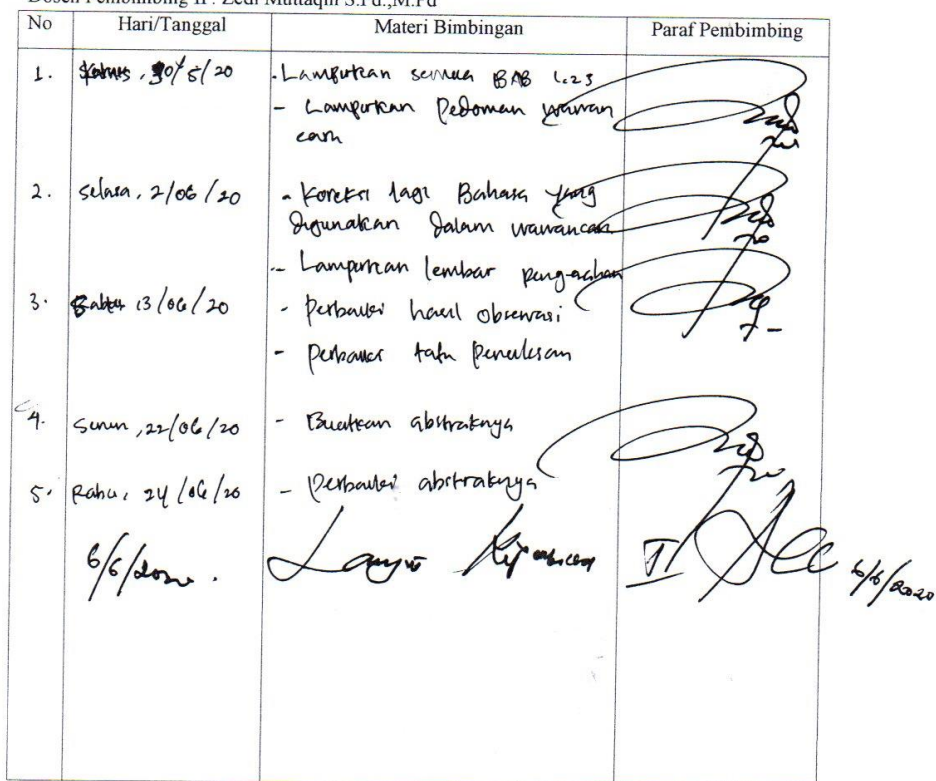 Dosen Pembimbing II : Zedi Muttaqin S.Pd.,M.Pd
No Hari/Tanggal Materi Bimbingan Paraf Pembimbing
1. 30/5/20 - Lampirkan semua BAB 1.2 3
- Lampirkan Pedoman wawan
cara
2. Selasa, 2/06/20 - Koreksi lagi Bahasa yang
digunakan dalam wawancara
- Lampirkan lembar pengesahan
3. Sabtu 13/06/20 - Perbaiki hasil observasi
- Perbaiki tata penulisan
4. Senin, 22/06/20 - Buatkan abstraknya
5. Rabu, 24/06/20 - Perbaiki abstraknya
6/6/2020. II Acc 6/6/2020